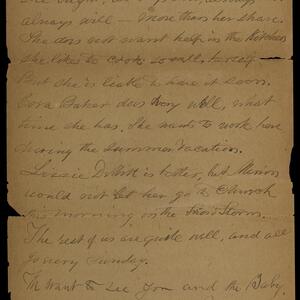 always will – more than her share.
She does not want help in the Kitchen
she likes to cook so well
But she is liable to have it soon.
Cora Baker does very well, what
time she has. She wants to work here
during the summer vacation.
Lizzie is better, but Minnie
would not let her go to Church
this morning in the Snow Storm.
The rest of us are quite well, and all
go every Sunday.
We want to see you and the Baby.